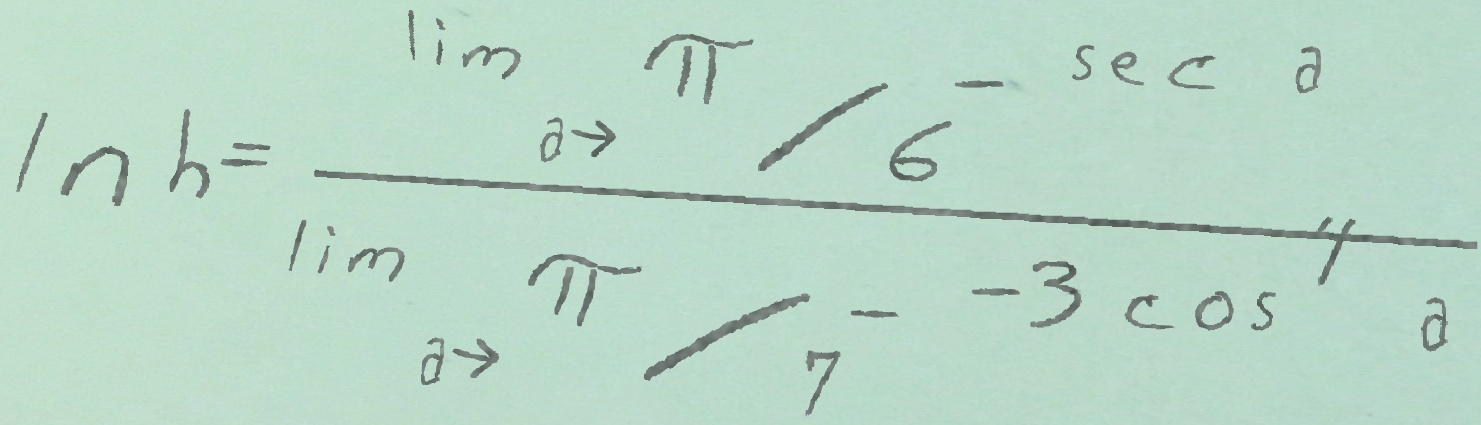 ln h = \frac{\lim_{a \to \pi/6^-} \sec a}{\lim_{a \to \pi/7^-} -3 \cos^4 a}